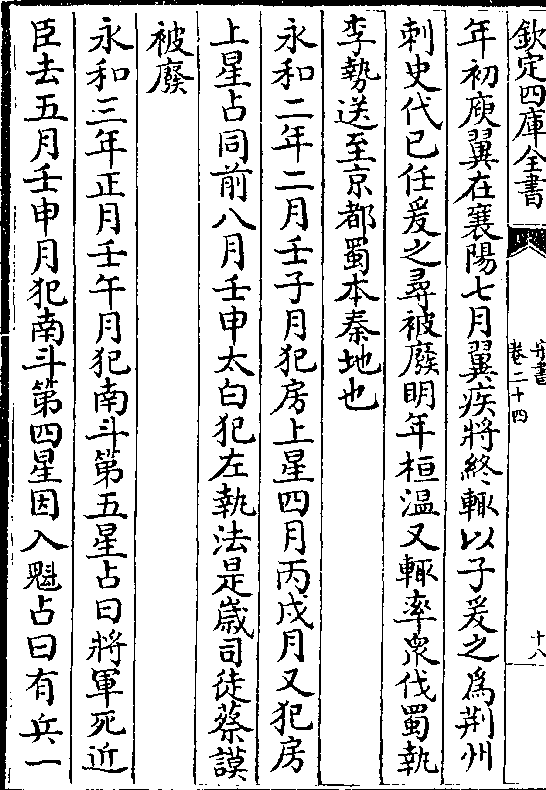 欽定四庫全書
宋書
卷二十四
十八
年初庾翼在襄陽七月翼疾將終輒以子爰之為荆州
刺史代已任爰之尋被廢明年桓温又輒率衆伐蜀執
李勢送至京都蜀本秦地也
永和二年二月壬子月犯房上星四月丙戌月又犯房
上星占同前八月壬申太白犯左執法是嵗司徒蔡謨
被廢
永和三年正月壬午月犯南斗第五星占曰將軍死近
臣去五月壬申月犯南斗第四星因入魁占曰有兵一